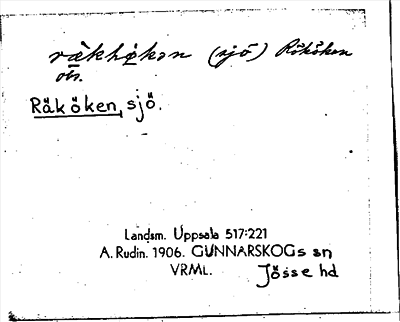 råkhøkən (sjö) Råköken
ots.
Råköken, sjö.
Landsm. Uppsala 517:221
A. Rudin. 1906. GUNNARSKOGs sn
VRML. Jösse hd